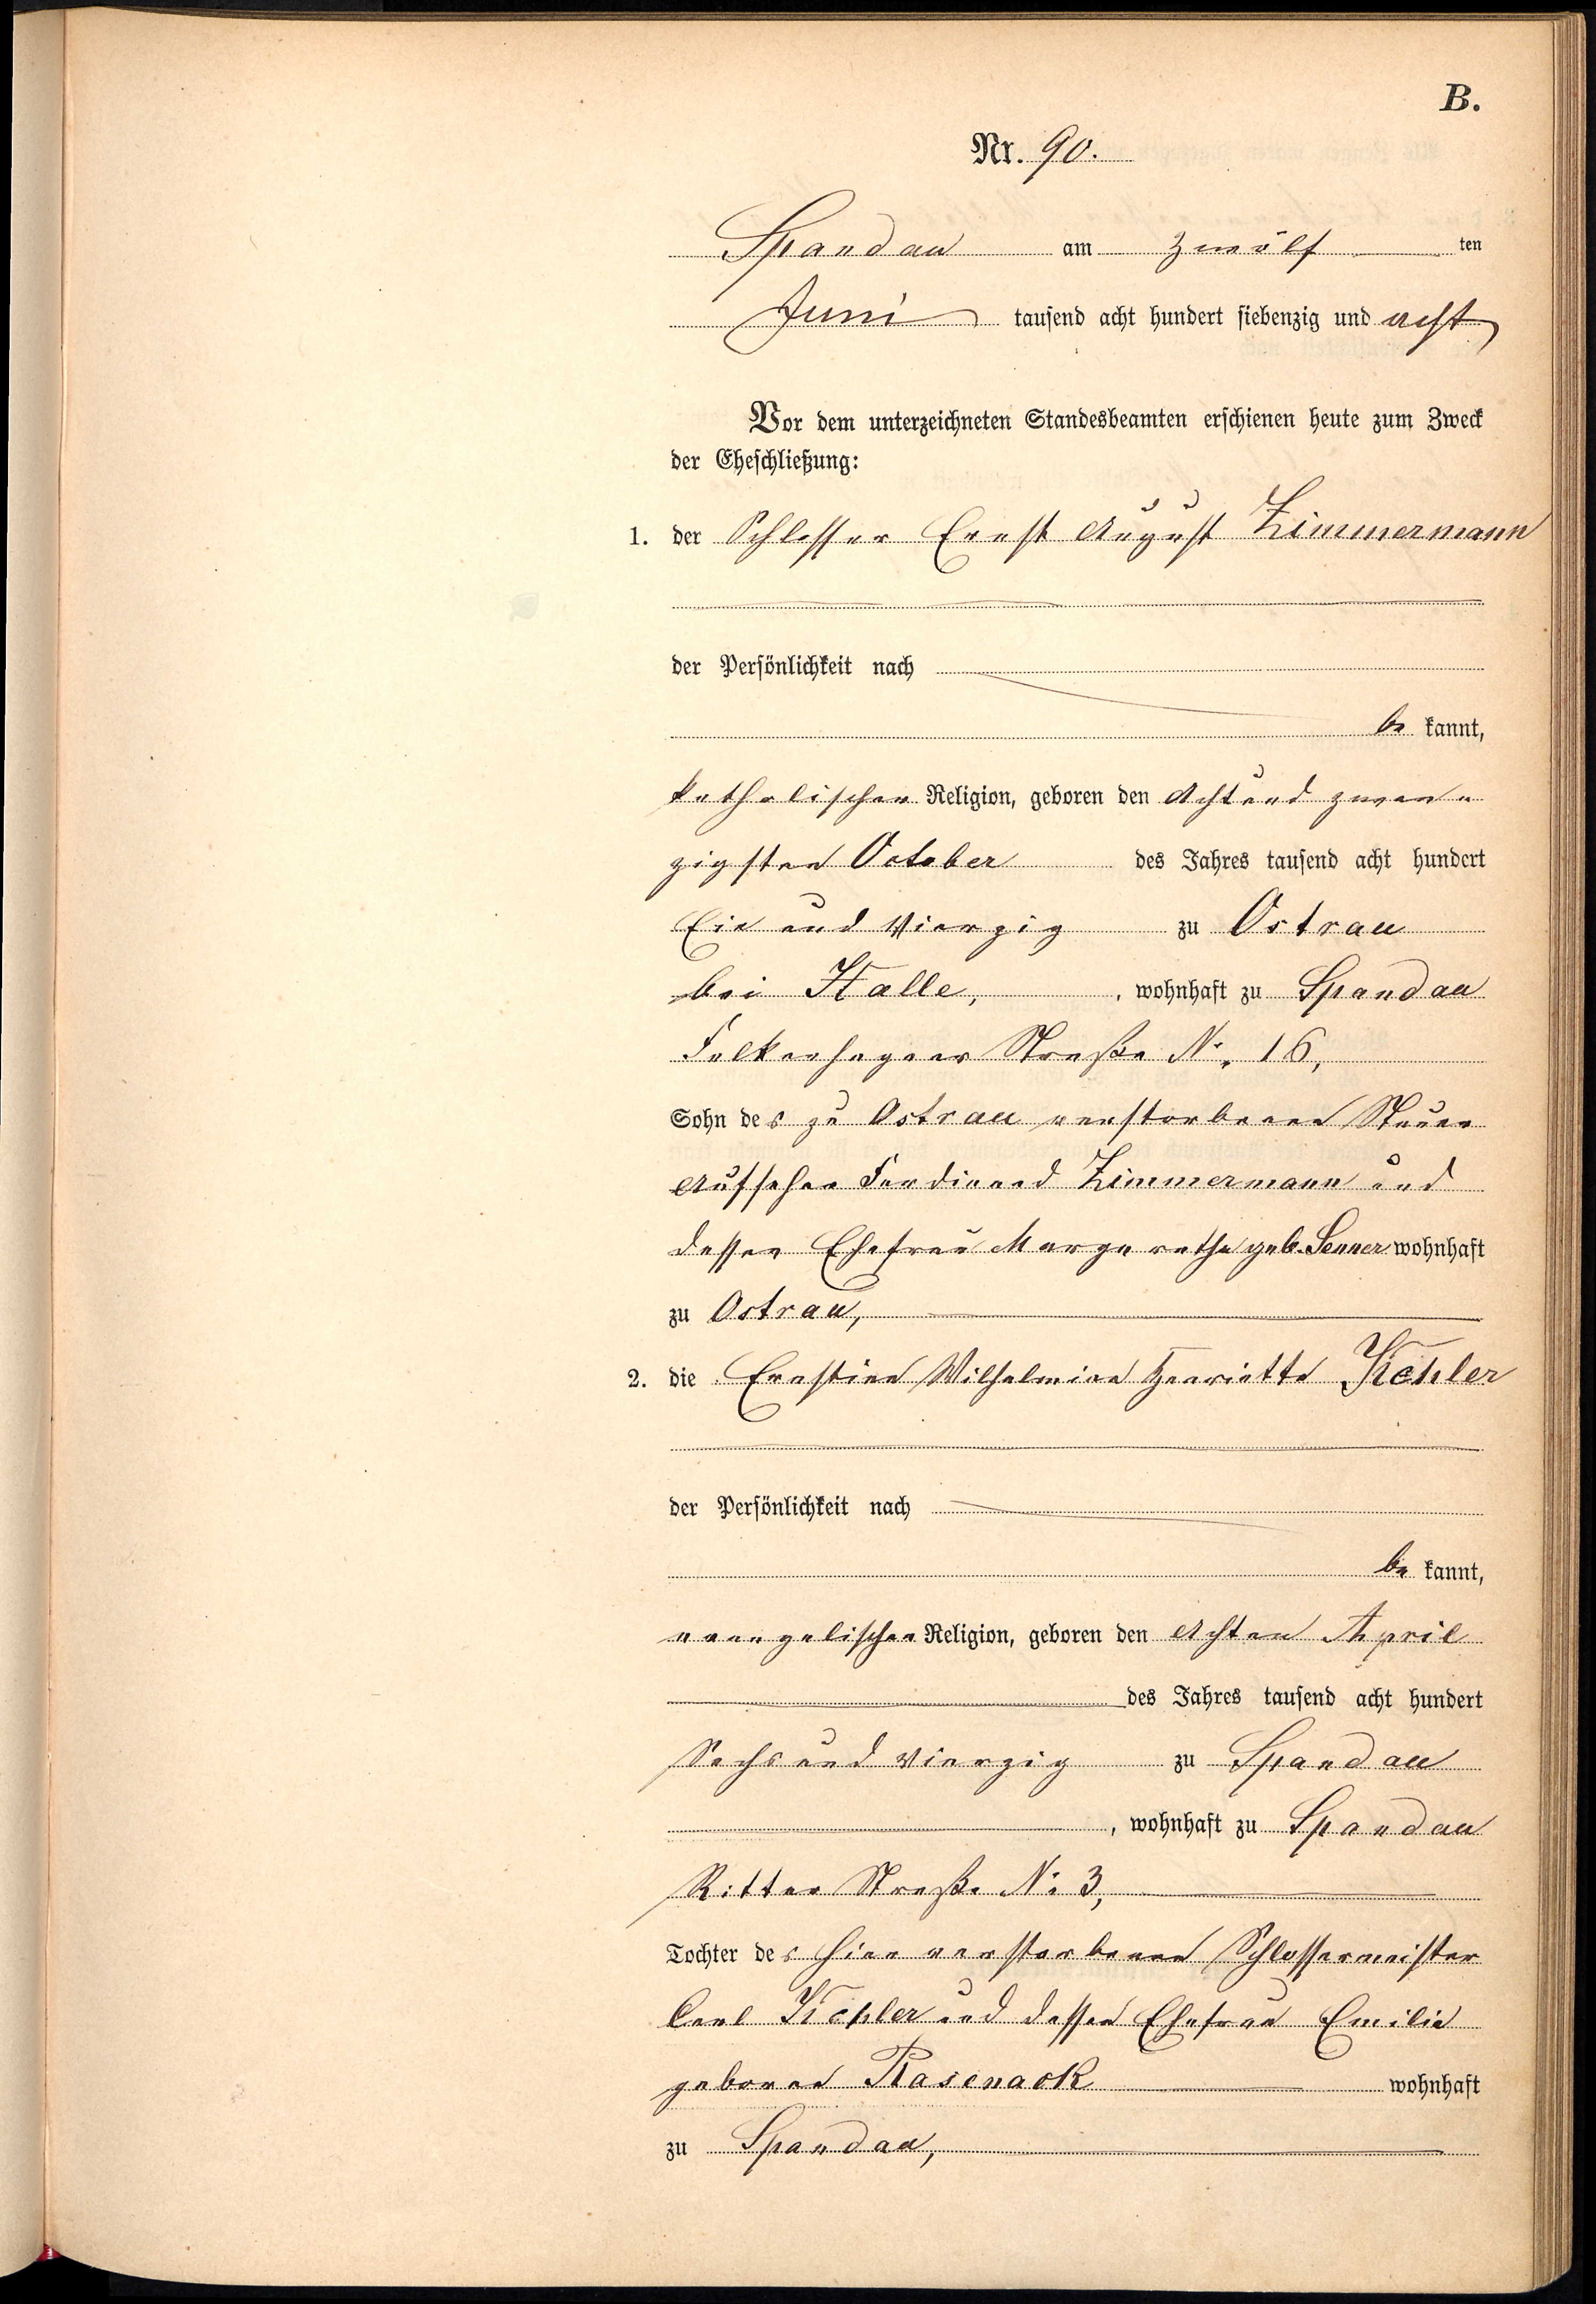 B.
Nr. 90.
Spandau am zwölf ten
Juni tausend acht hundert siebenzig und acht
Vor dem unterzeichneten Standesbeamten erschienen heute zum Zweck
der Eheschließung:
1. der Schlosser Ernst August Zimmermann
der Persönlichkeit nach
be kannt,
katholischer Religion, geboren den Achtund zwan
zigsten October des Jahres tausend acht hundert
Ein und Vierzig zu Ostrau
bei Halle, , wohnhaft zu Spandau
Falkenhagener Straße No. 16,
Sohn des zu Ostrau verstorbenen Steuer
Aufseher Ferdinand Zimmermann und
dessen Ehefrau Margarethe geb. Senner wohnhaft
zu Ostrau,
2. die Ernstine Wilhelmine Henriette Köhler
der Persönlichkeit nach
be kannt,
evangelischer Religion, geboren den Achten April
des Jahres tausend acht hundert
Sechs und Vierzig zu Spandau
, wohnhaft zu Spandau
Ritter Straße No 3,
Tochter des hier verstorbenen Schlossermeister
Carl Köhler und dessen Ehefrau Emilie
geboren Rasenack wohnhaft
zu Spandau,